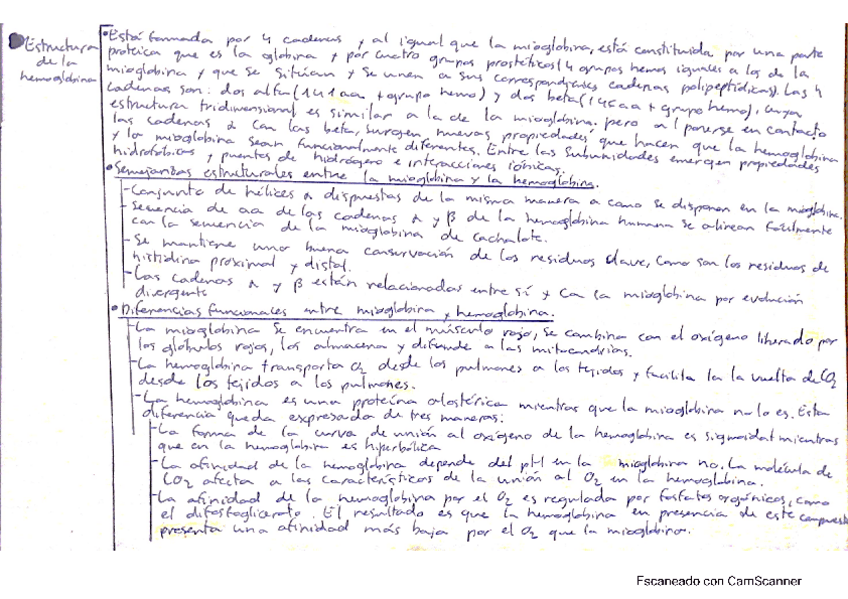 Estructura
de la
hemoglobina
• Está formada por 4 cadenas y al igual que la mioglobina, está constituida por una parte
proteica que es la globina y por cuatro grupos prostéticos (4 grupos hemos iguales a los de la
mioglobina y que se sitúan y se unen a sus correspondientes cadenas polipeptídicas). Las 4
cadenas son: dos alfa (141aa + grupo hemo) y dos beta (146aa + grupo hemo), cuya
estructura tridimensional es similar a la de la mioglobina. pero al ponerse en contacto
las cadenas α con las beta, surgen nuevas propiedades, que hacen que la hemoglobina
y la mioglobina sean funcionalmente diferentes. Entre las subunidades emergen propiedades
hidrofóbicas y puentes de hidrógeno e interacciones iónicas.
• Semejanzas estructurales entre la mioglobina y la hemoglobina.
- Conjunto de hélices α dispuestas de la misma manera a como se disponen en la mioglobina.
- Secuencia de aa de las cadenas α y β de la hemoglobina humana se alinean fácilmente
con la secuencia de la mioglobina de cachalote.
- Se mantiene una buena conservación de los residuos clave, como son los residuos de
histidina proximal y distal.
- Las cadenas α y β están relacionadas entre sí y con la mioglobina por evolución
divergente
• Diferencias funcionales entre mioglobina y hemoglobina.
- La mioglobina se encuentra en el músculo rojo, se combina con el oxígeno liberado por
los glóbulos rojos, los almacena y difunde a las mitocondrias.
- La hemoglobina transporta O2 desde los pulmones a los tejidos y facilita la la vuelta de CO2
desde los tejidos a los pulmones.
- La hemoglobina es una proteína alostérica mientras que la mioglobina no lo es. Esta
diferencia queda expresada de tres maneras:
- La forma de la curva de unión al oxígeno de la hemoglobina es sigmoidal mientras
que en la hemoglobina es hiperbólica
- La afinidad de la hemoglobina depende del pH en la mioglobina no. La molécula de
CO2 afecta a las características de la unión al O2 en la hemoglobina.
- La afinidad de la hemoglobina por el O2 es regulada por fosfatos orgánicos, como
el difosfoglicerato. El resultado es que la hemoglobina en presencia de este compuesto
presenta una afinidad más baja por el O2 que la mioglobina.
Escaneado con CamScanner